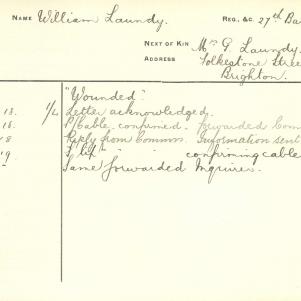 NAME William Laundy. REG., &C. 27th Ba
NEXT OF KIN Mrs G. Laundy.
ADDRESS Folkestone Stree
Brighton.
"Wounded".
13. 1/4 Letter acknowledged.
16. P/Cable, confirmed. forwarded Com
18 Reply from Commn. Information sent
19 " " confirming cable
Same forwarded Inquirer.